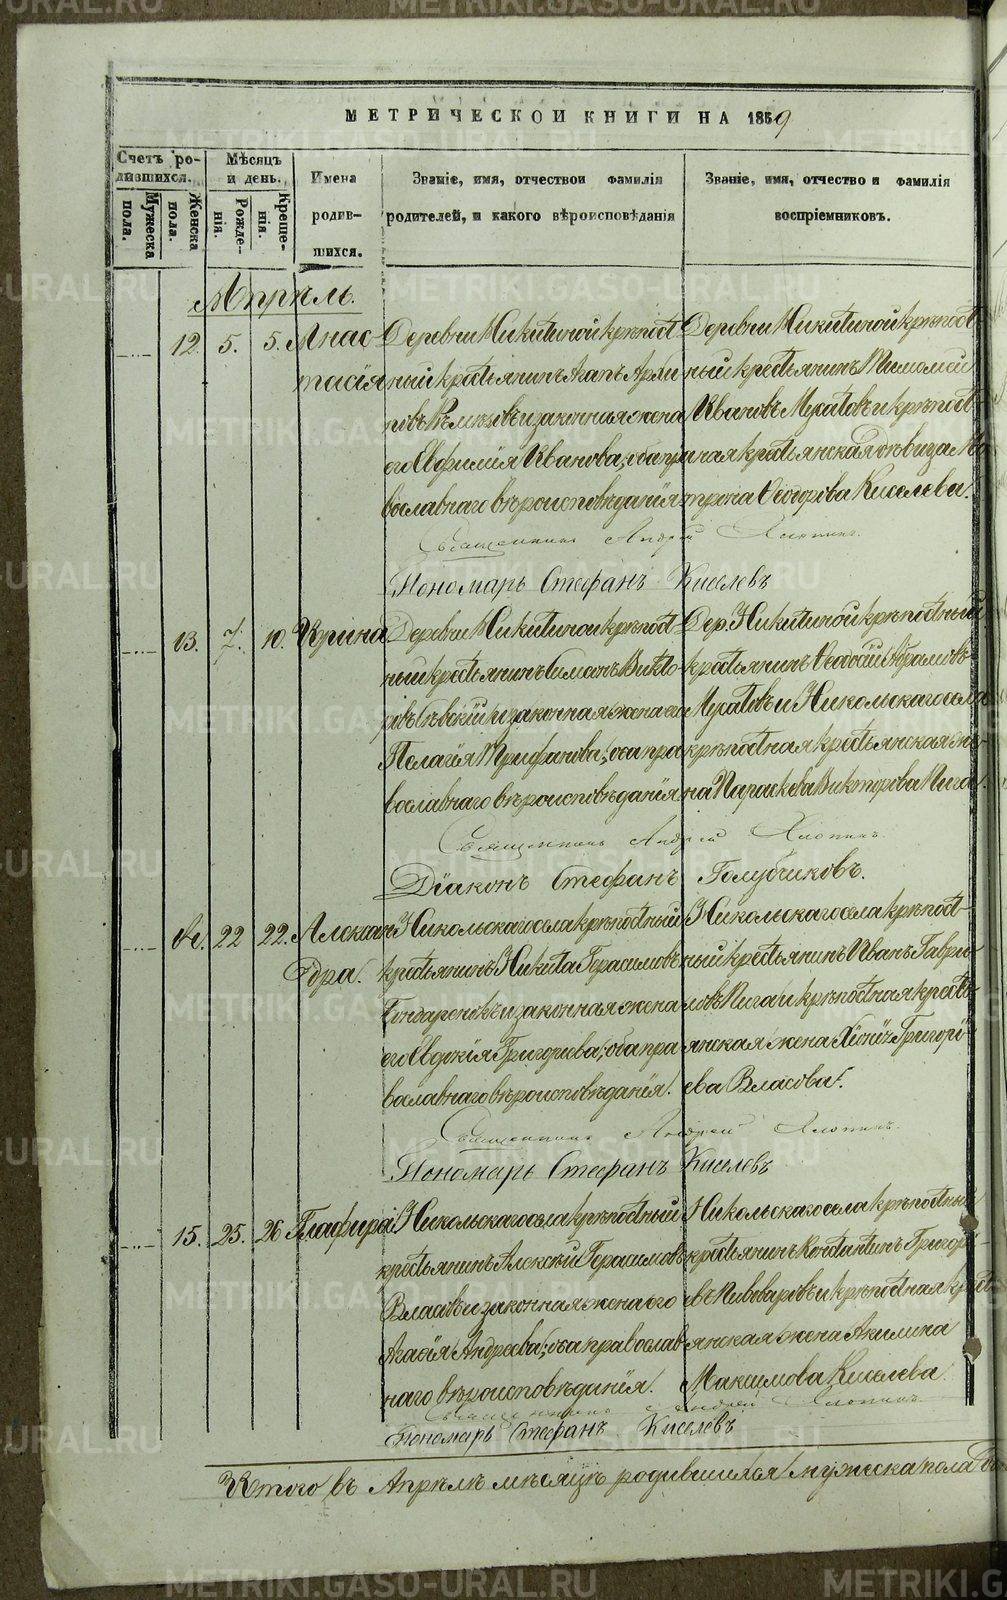 МЕТРИЧЕСКОЙ КНИГИ НА 1859
Счетъ ро-
дившихся.
Мужеска
пола.
Женска
пола.
Мѣсяцъ
и день.
Рожде-
нія.
Креще-
нія.
Имена
родив-
шихся.
Званіе, имя, отчество и фамилія
родителей, и какого вѣроисповѣданія
Званіе, имя, отчество и фамилія
воспріемниковъ.
Апрѣль.
12. 5. 5. Анас-
тасія
Деревни Никитиной крѣпост-
ный крестьянинъ Агапъ Архи
повъ и законная жена
его Евфимія Иванова; оба пра
вославнаго вѣроисповѣданія
Деревни Никитиной крѣпост-
ный крестьянинъ Тимофей
Ивановъ Мусатовъ и крѣпост-
ная крестьянская дѣвица Ма
трена Ѳеодорова Киселева.
Священникъ Андрей Хлопинъ.
Пономарь Стефанъ Киселевъ
13. 7. 10. Ирина
Деревни Никитиной крѣпост
ный крестьянинъ Симеонъ Викто-
ровъ и законная жена его
Пелагія Трифанова; оба пра
вославнаго вѣроисповѣданія
Дер. Никитиной крѣпостный
крестьянинъ Ѳеодосій Абрамовъ
Мусатовъ и Никольскаго села
крѣпостная крестьянская же-
на Параскева Викторова Пига.
Священникъ Андрей Хлопинъ.
Діаконъ Стефанъ Голубчиковъ.
14. 22 22. Алексан
дра.
Никольскаго села крѣпостный
крестьянинъ Никита Герасимовъ
Бондаренковъ и законная жена
его Евдокія Григорьева; оба пра
вославнаго вѣроисповѣданія.
Никольскаго села крѣпост-
ный крестьянинъ Иванъ Гаври-
ловъ Пига и крѣпостная кресть-
янская жена Хіонія Григорі-
ева Власова.
Священникъ Андрей Хлопинъ.
Пономарь Стефанъ Киселевъ
15. 25. 26 Глафира
Никольскаго села крѣпостный
крестьянинъ Алексѣй Герасимовъ
Власовъ и законная жена его
Агафія Андреева; оба православ
наго вѣроисповѣданія.
Никольскаго села крѣпостный
крестьянинъ Константинъ Григорі-
евъ Пивоваровъ и крѣпостная крест-
янская жена Акилина
Максимова Киселева.
Священникъ Андрей Хлопинъ
Пономарь Стефанъ Киселевъ
Итого въ Апрѣлѣ мѣсяцѣ родившихся мужеска пола
METRIKI.GASO-URAL.RU